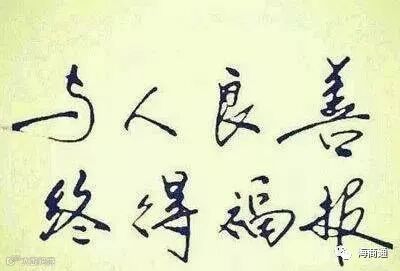 与人良善
终得福报
海商通